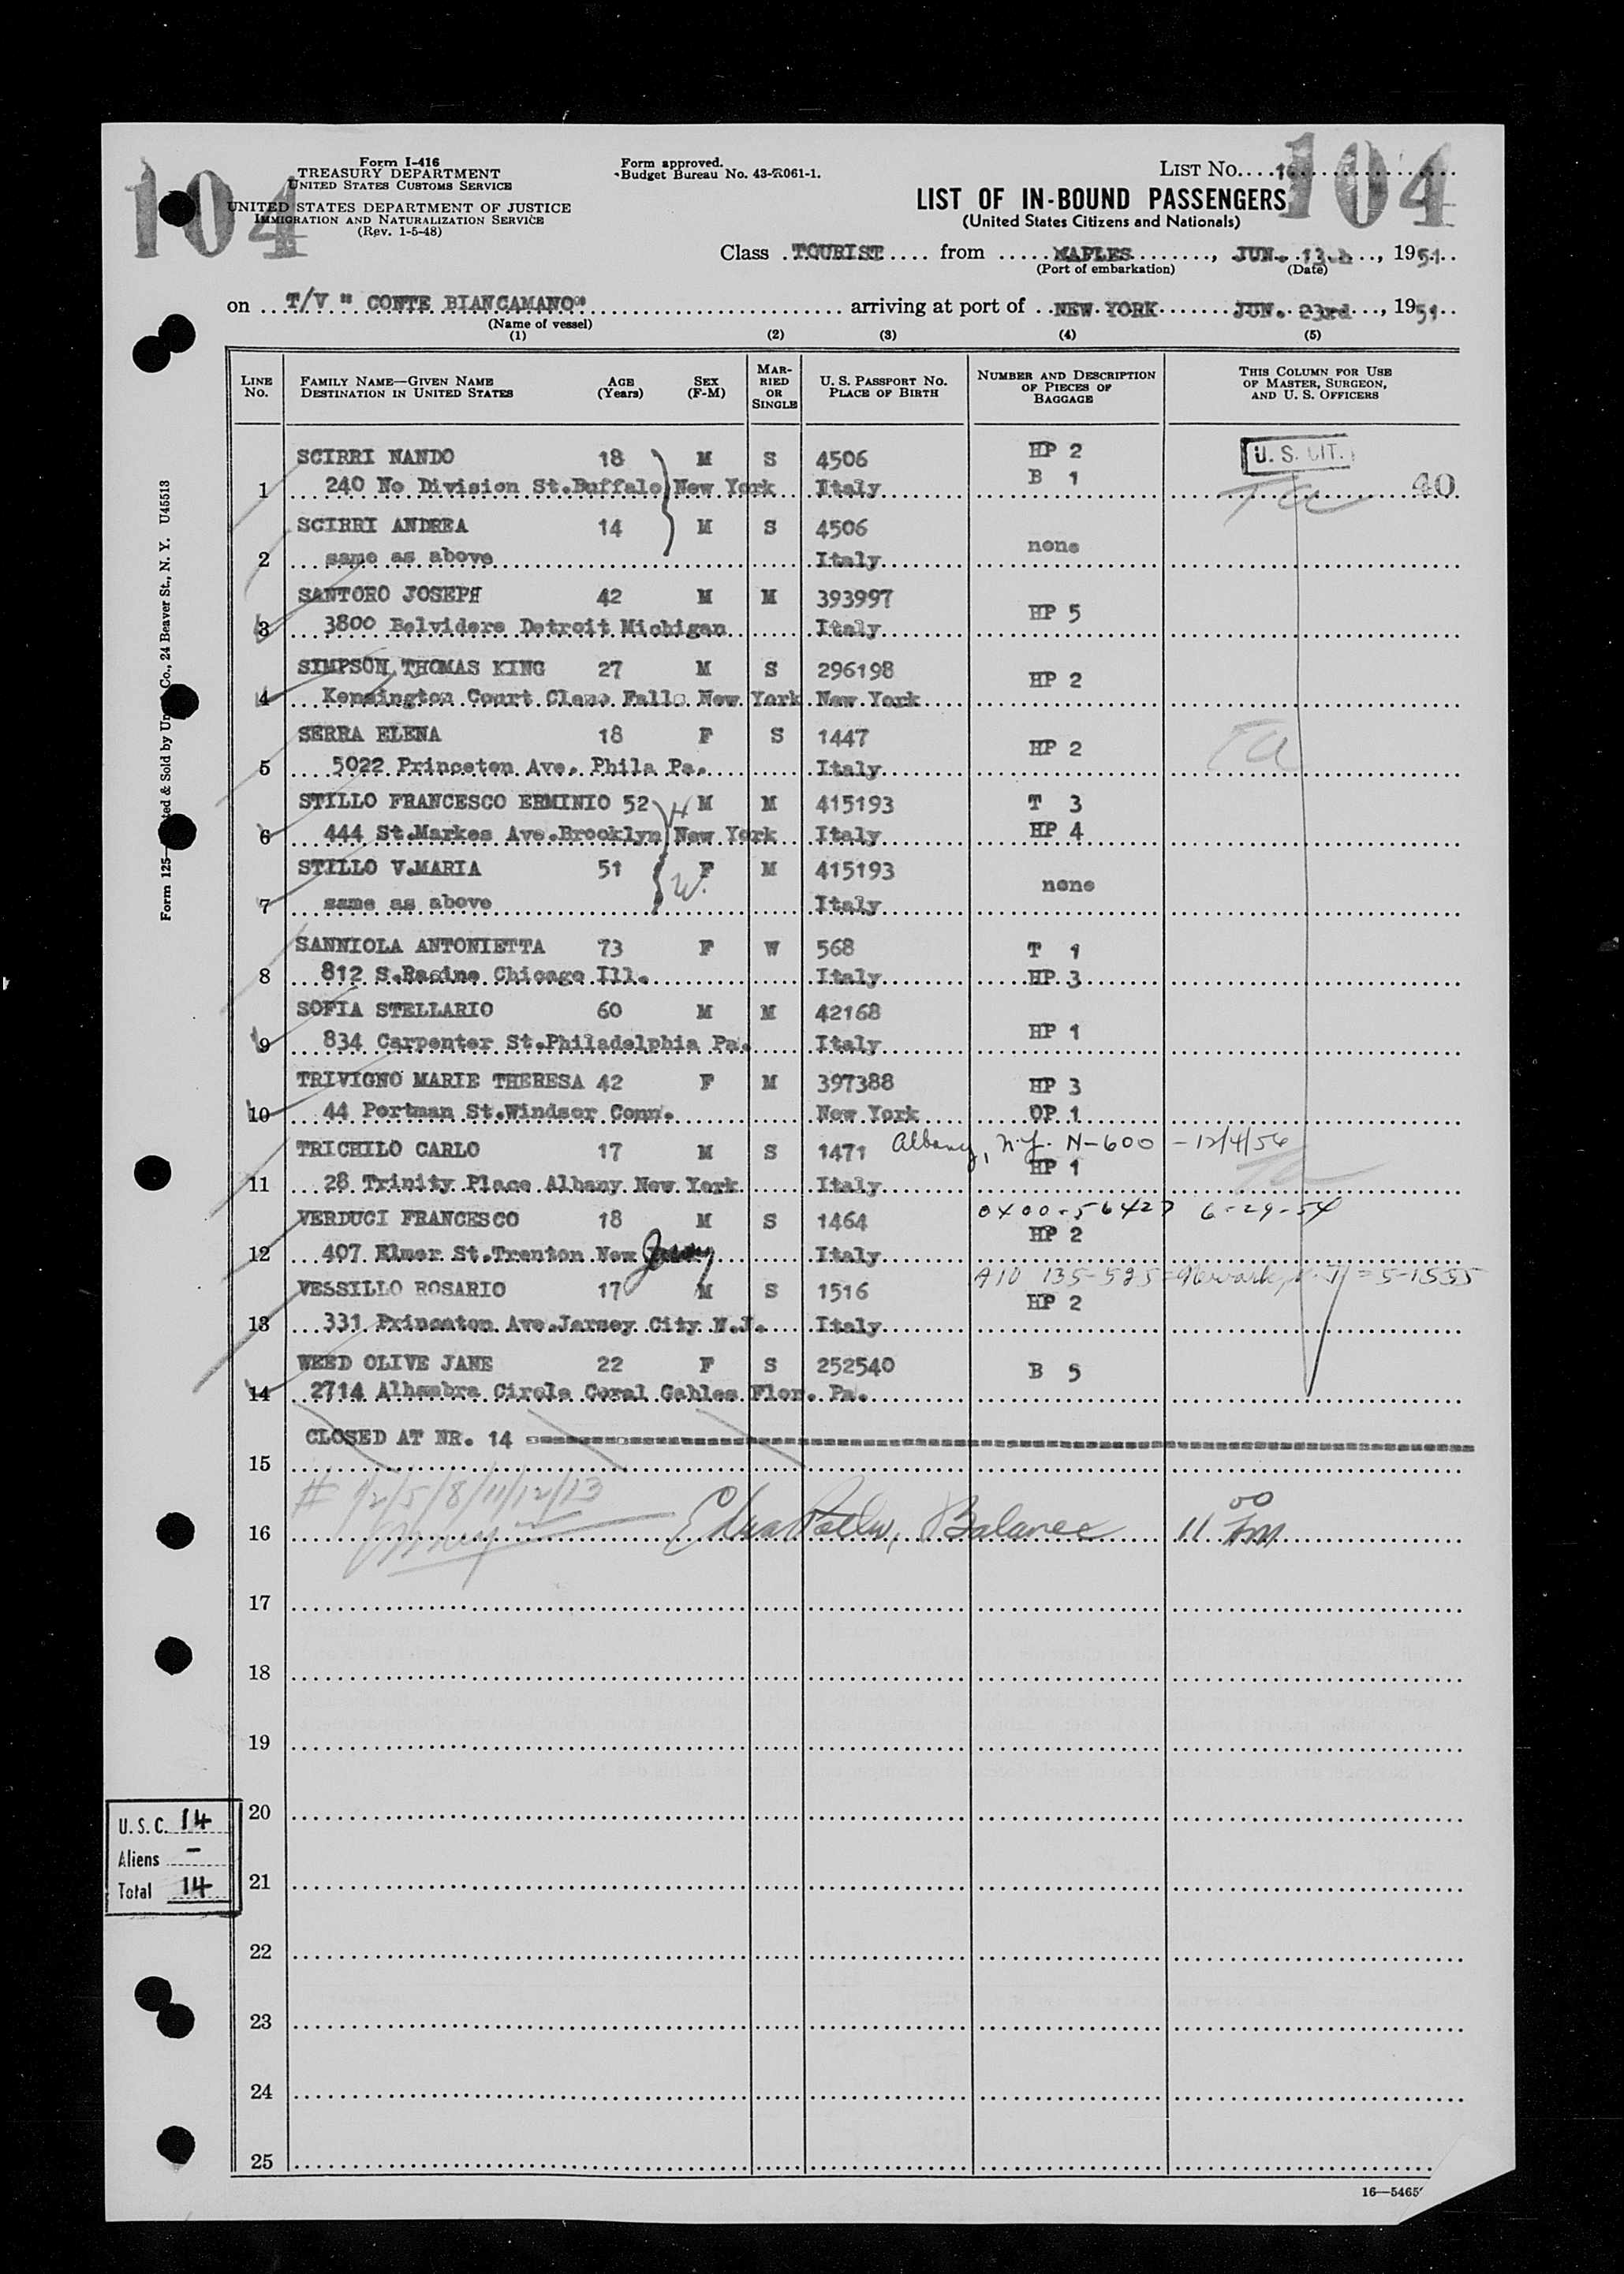 104
Form I-416
TREASURY DEPARTMENT
UNITED STATES CUSTOMS SERVICE
UNITED STATES DEPARTMENT OF JUSTICE
IMMIGRATION AND NATURALIZATION SERVICE
(Rev. 1-5-48)
Form approved.
Budget Bureau No. 43-R061-1.
LIST No.
104
LIST OF IN-BOUND PASSENGERS
(United States Citizens and Nationals)
Class TOURIST from NAPLES, JUN. 13th, 1951
(Port of embarkation) (Date)
on T/V " CONTE BIANCAMANO" arriving at port of NEW YORK JUN. 23rd, 1951
(Name of vessel)
(1) (2) (3) (4) (5)
LINE No. FAMILY NAME—GIVEN NAME DESTINATION IN UNITED STATES AGE (Years) SEX (F-M) MARRIED OR SINGLE U. S. PASSPORT NO. PLACE OF BIRTH NUMBER AND DESCRIPTION OF PIECES OF BAGGAGE THIS COLUMN FOR USE OF MASTER, SURGEON, AND U. S. OFFICERS
SCIRRI NANDO 18 M S 4506 HP 2 U. S. CIT.
1 240 No Division St.Buffalo New York Italy B 1 40
SCIRRI ANDREA 14 M S 4506 none
2 same as above Italy
SANTORO JOSEPH 42 M M 393997 HP 5
3 3800 Belvidere Detroit Michigan Italy
SIMPSON THOMAS KING 27 M S 296198 HP 2
4 Kensington Court Clens Falls New York New York
SERRA ELENA 18 F S 1447 HP 2
5 5022 Princeton Ave. Phila Pa. Italy
STILLO FRANCESCO ERMINIO 52 H M M 415193 T 3
6 444 St.Markes Ave.Brooklyn New York Italy HP 4
STILLO V.MARIA 51 W. F M 415193 none
7 same as above Italy
SANNIOLA ANTONIETTA 73 F W 568 T 1
8 812 S.Racine Chicago Ill. Italy HP 3
SOFIA STELLARIO 60 M M 42168 HP 1
9 834 Carpenter St.Philadelphia Pa. Italy
TRIVIGNO MARIE THERESA 42 F M 397388 HP 3
10 44 Portman St.Windsor Conn. New York OP 1
TRICHILO CARLO 17 M S 1471 Albany, N.Y. N-600 - 12/4/56
HP 1
11 28 Trinity Place Albany New York Italy
VERDUCI FRANCESCO 18 M S 1464 0400-56427 6-29-54
HP 2
12 407 Elmer St.Trenton New Jersey Italy
VESSILLO ROSARIO 17 M S 1516 A10 135-525
HP 2
13 331 Princeton Ave.Jersey City N.J. Italy
WEED OLIVE JANE 22 F S 252540 B 5
14 2714 Alhambra Circle Coral Gables Flor. Pa.
CLOSED AT NR. 14
15
# 1/2/5/8/11/12/13
16 Balance 11
17
18
19
20
21
22
23
24
25
U. S. C. 14
Aliens -
Total 14